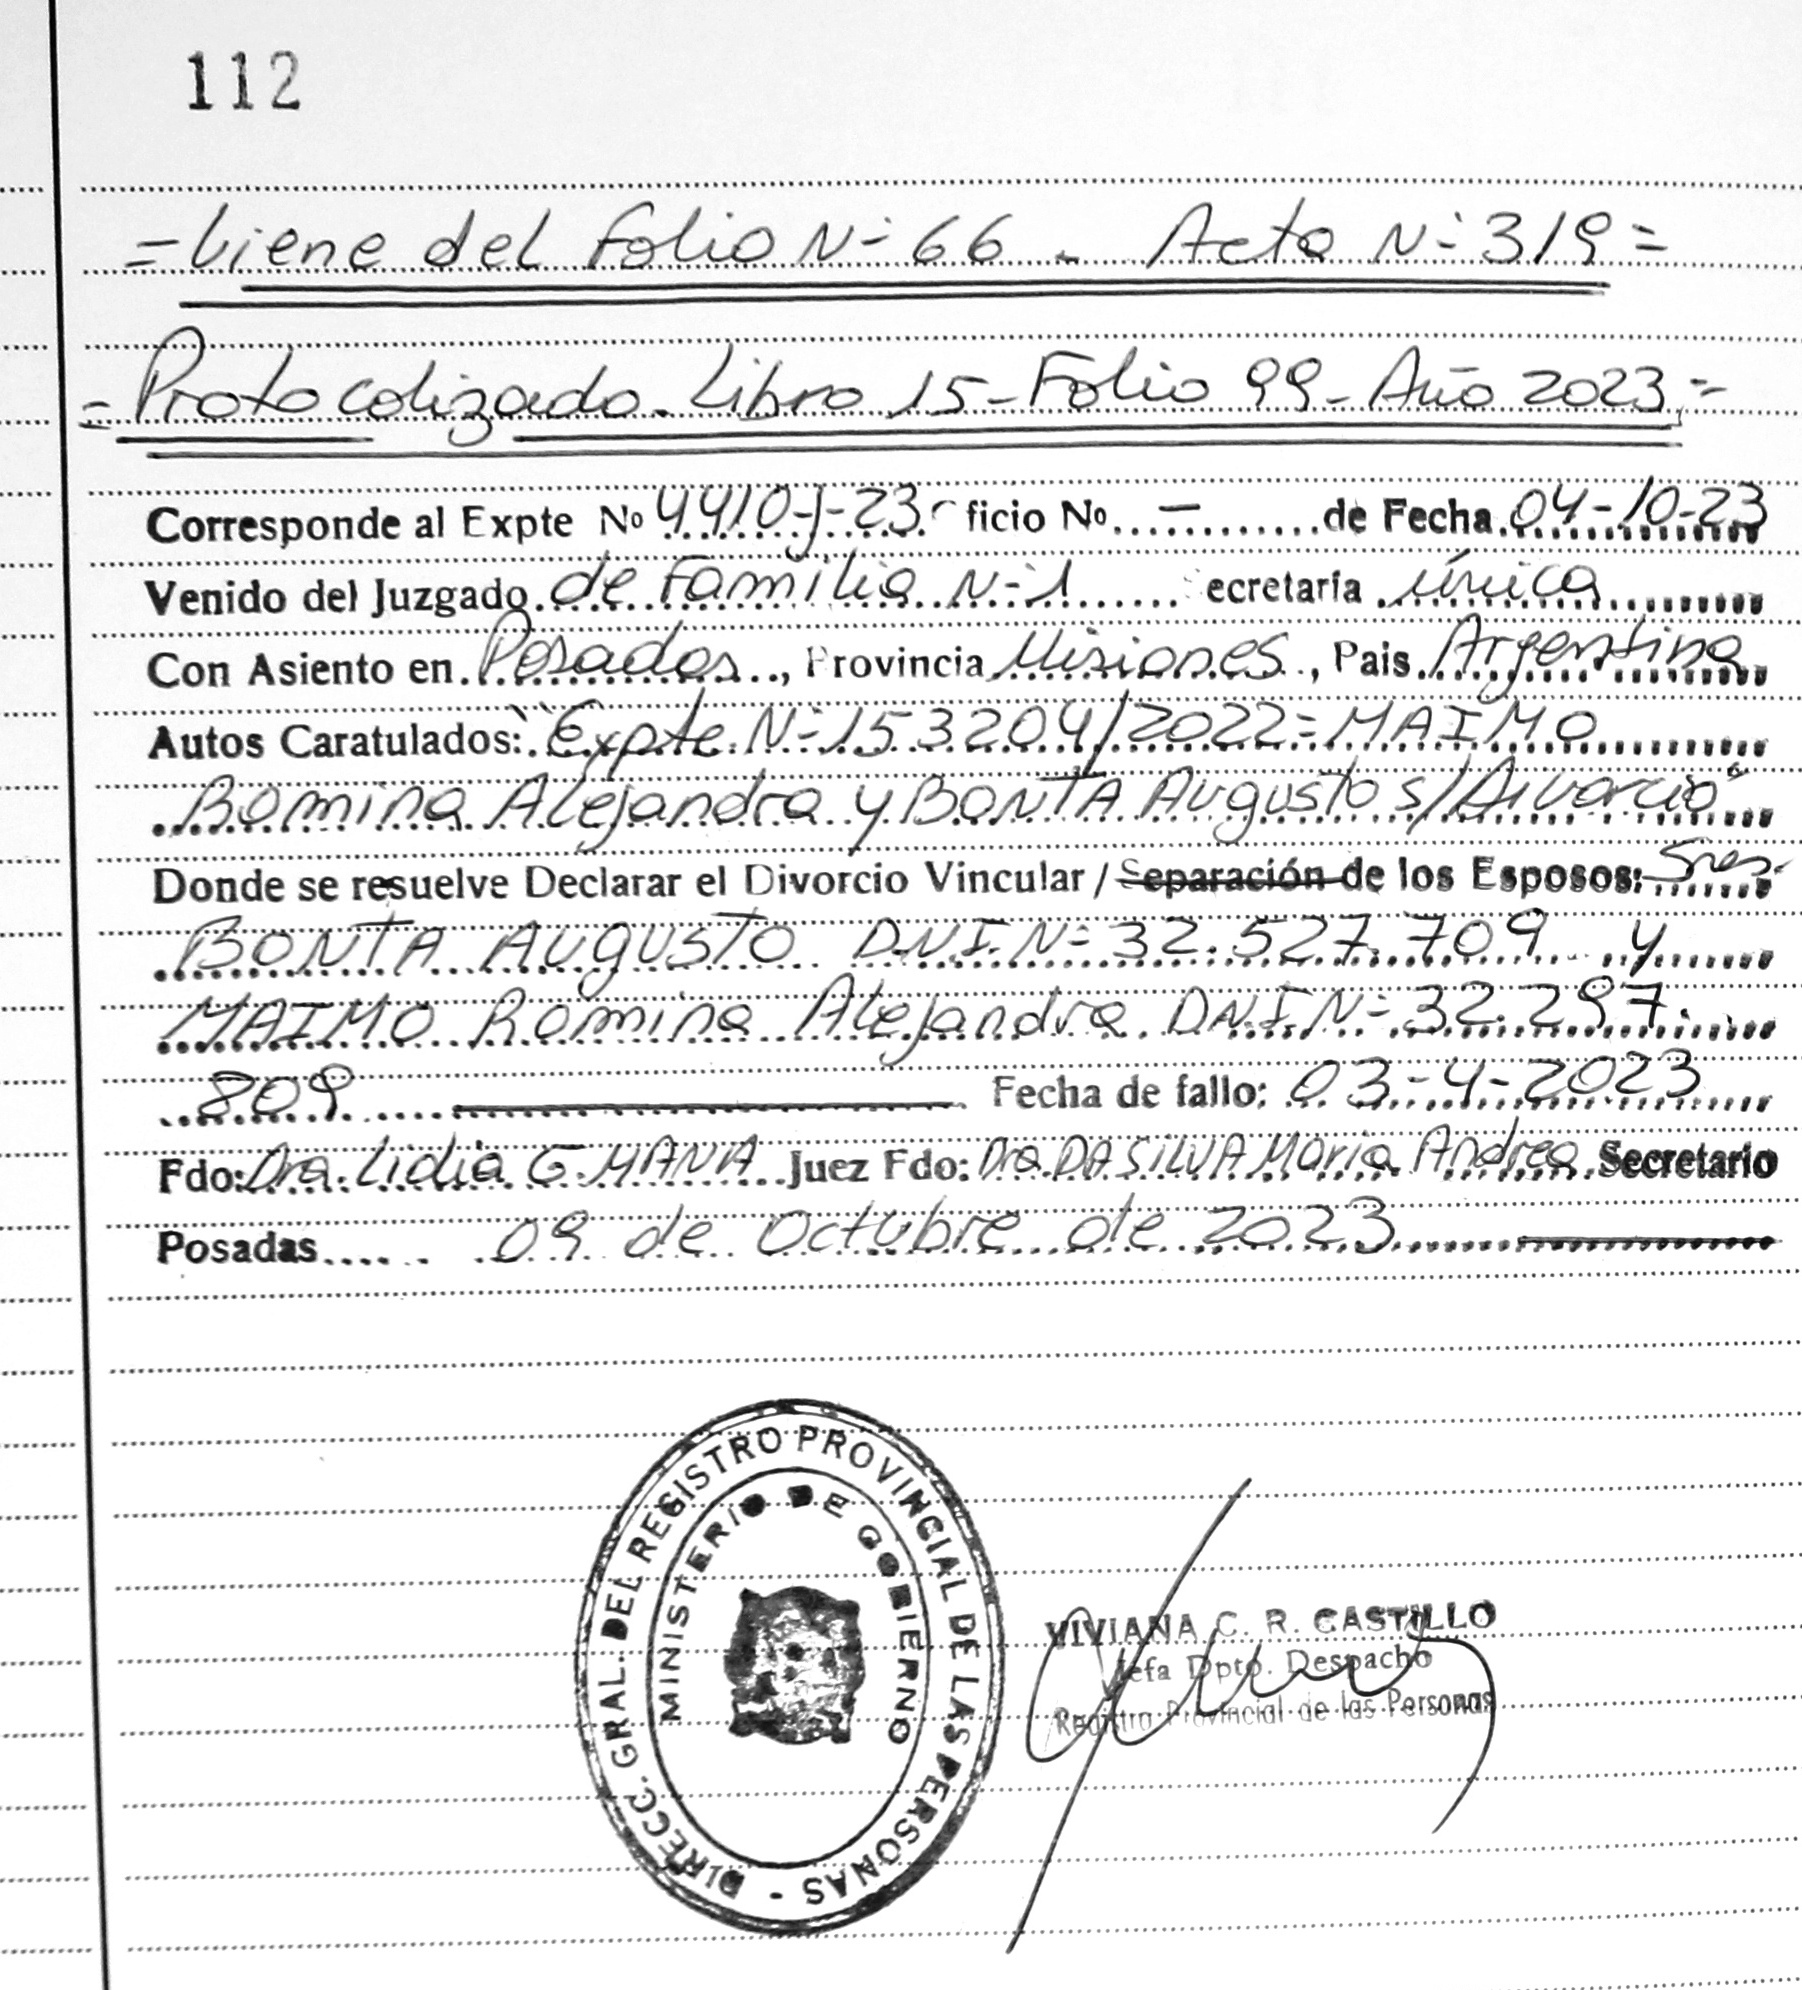 112
= Viene del Folio N- 66 - Acta N- 319 =
= Protocolizado. Libro 15 - Folio 99 - Año 2023 =
Corresponde al Expte No 4410-J-23 ficio No. - de Fecha 04-10-23
Venido del Juzgado de Familia N-1 ecretaría única
Con Asiento en Posadas, Provincia Misiones, Pais Argentina
Autos Caratulados: "Expte N- 153204/2022 = MAIMO
Romina Alejandra y BONTA Augusto s/Divorcio"
Donde se resuelve Declarar el Divorcio Vincular / Separación de los Esposos: Sres.
BONTA AUGUSTO D.N.I. N- 32.527.709 y
MAIMO Romina Alejandra D.N.I. N- 32.297.
809 Fecha de fallo: 03-4-2023
Fdo: Dra. Lidia G. MANA Juez Fdo: Dra. DA SILVA Maria Andrea Secretario
Posadas 09 de Octubre de 2023
DIRECC. GRAL. DEL REGISTRO PROVINCIAL DE LAS PERSONAS -
MINISTERIO DE GOBIERNO
VIVIANA C. R. CASTILLO
Jefa Dpto. Despacho
Registro Provincial de las Personas